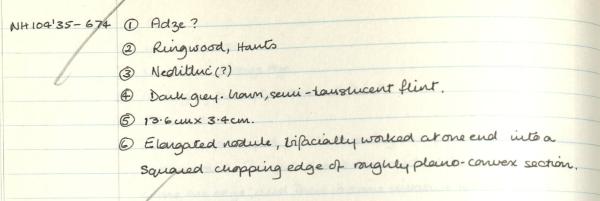 NH104'35-674 ① Adze?
② Ringwood, Hants
③ Neolithic(?)
④ Dark grey-brown, semi-translucent flint.
⑤ 13.6cm x 3.4cm.
⑥ Elongated nodule, bifacially worked at one end into a
squared chopping edge of roughly plano-convex section.